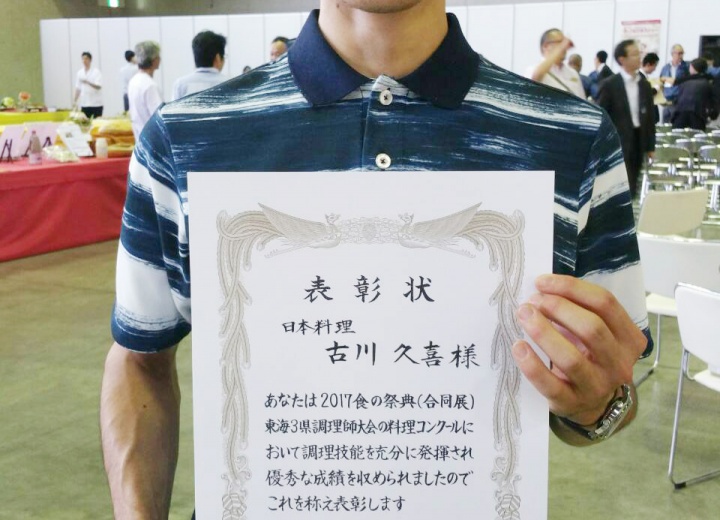 表彰状
日本料理
古川 久喜様
あなたは2017食の祭典(合同展)
東海3県調理師大会の料理コンクールに
おいて調理技能を充分に発揮され
優秀な成績を収められましたので
これを称え表彰します